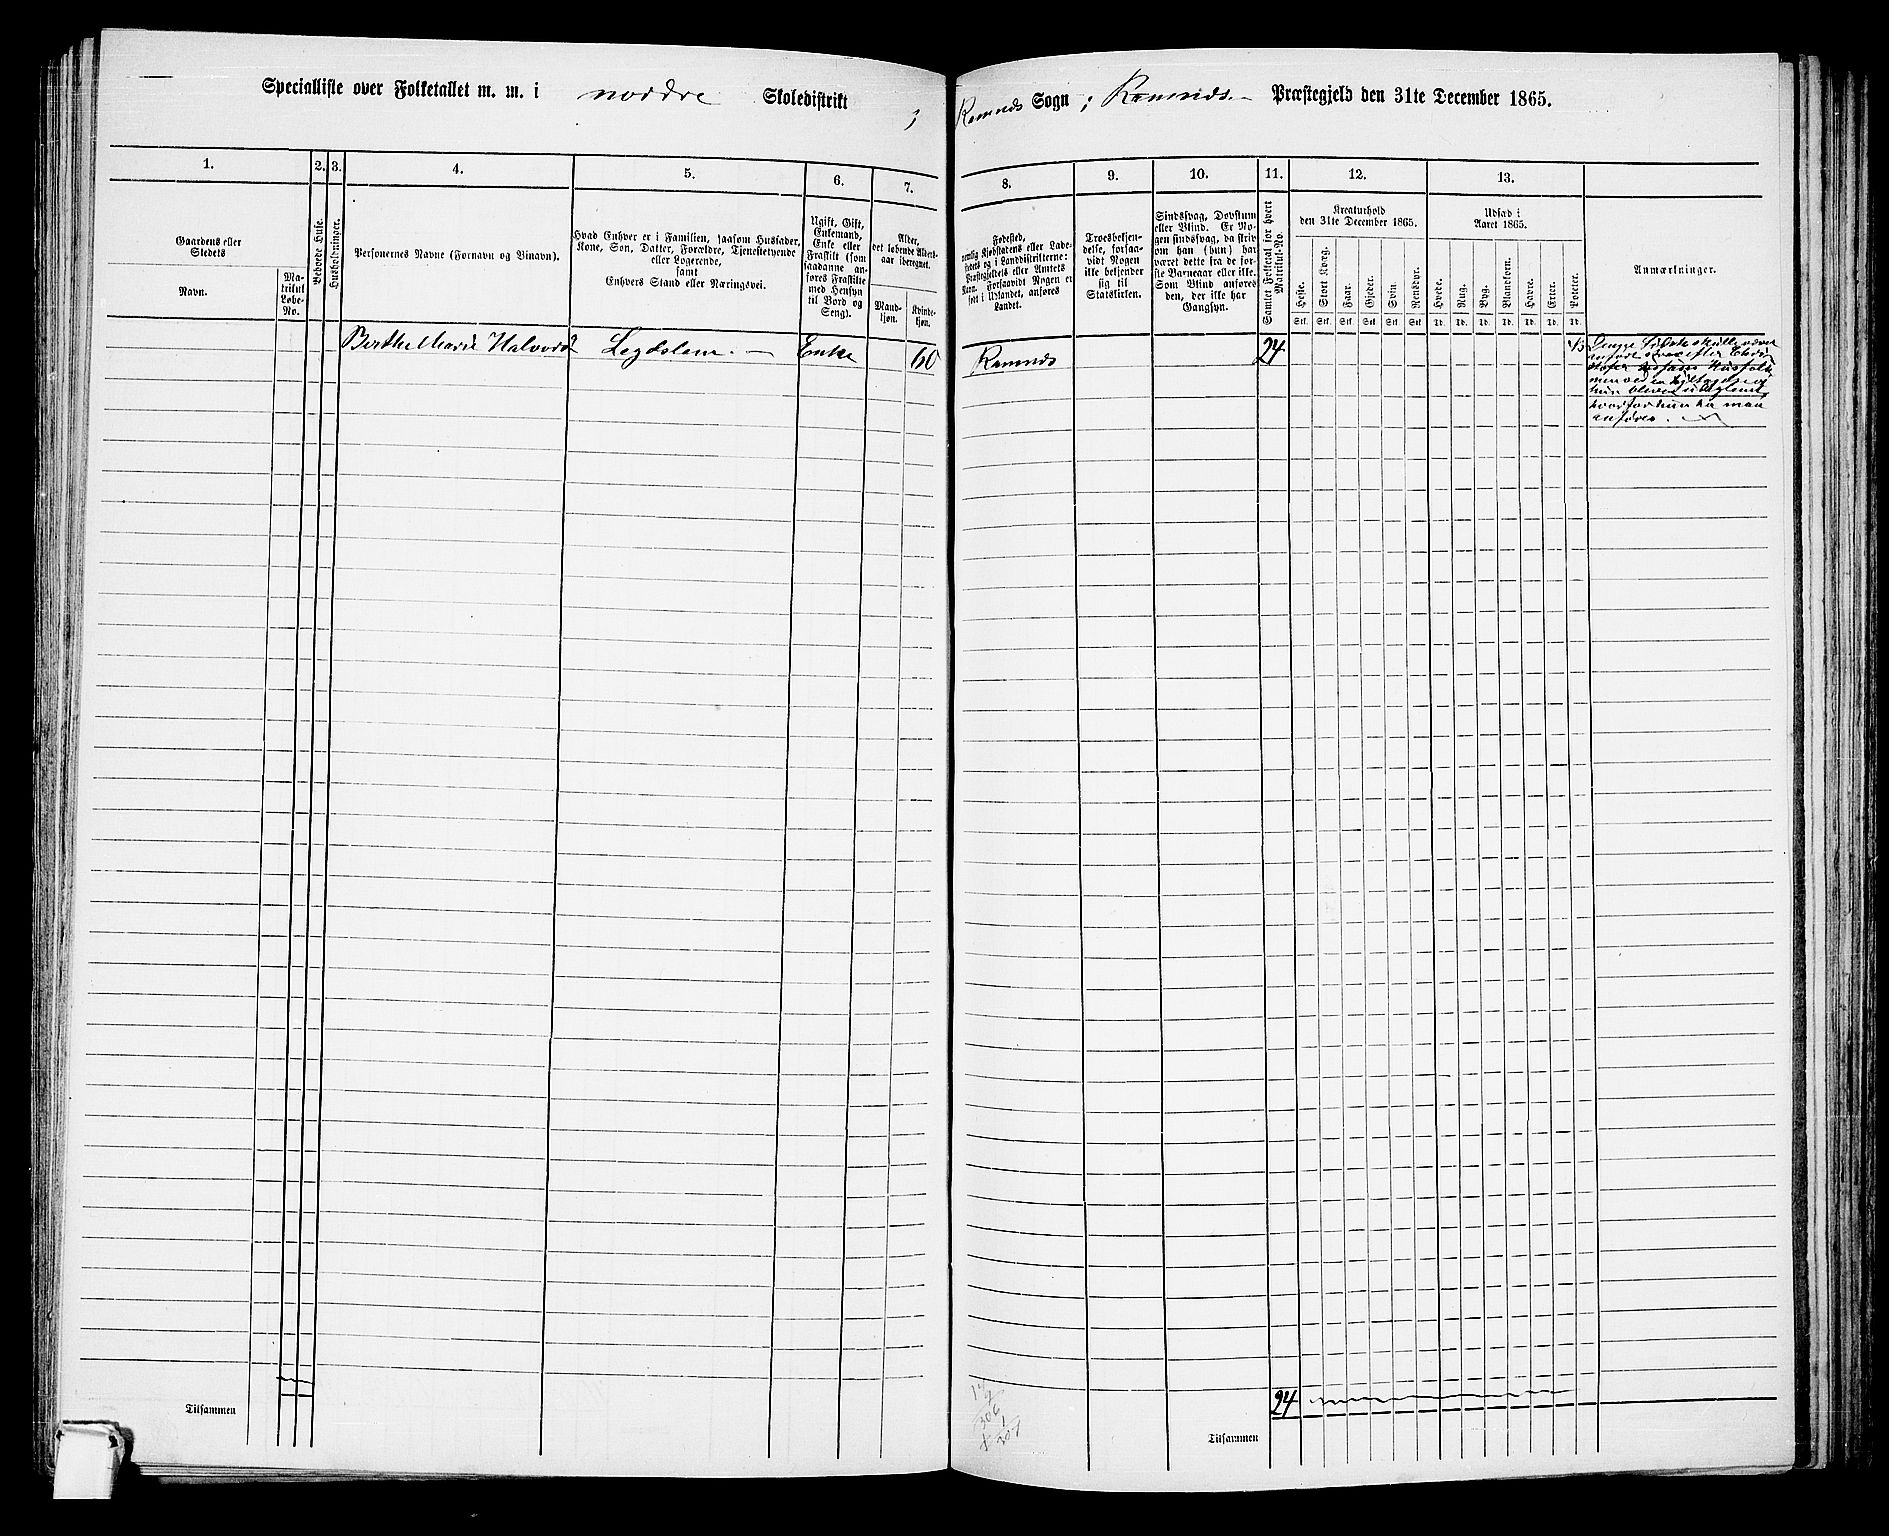 Specialliste over Folketallet m. m. i nordre Skoledistrikt
Ramnæs Sogn i Ramnæs Præstegjeld den 31te December 1865.
1. 2. 3. 4. 5. 6. 7. 8. 9. 10. 11. 12. 13.
Gaardens eller
Stedets
Navn.
Ma-
trikul
Løbe-
No.
Beboede Huse.
Husholdninger.
Personernes Navne (Fornavn og Binavn).
Hvad Enhver er i Familien, saasom Husfader,
Kone, Søn, Datter, Forældre, Tjenestetyende
eller Logerende,
samt
Enhvers Stand eller Næringsvei.
Ugift, Gift,
Enkemand,
Enke eller
Fraskilt (som
saadanne an-
føres Fraskilte
med Hensyn
til Bord og
Seng).
Alder,
det løbende Alders-
aar iberegnet.
Mand-
kjøn.
Kvinde-
kjøn.
Fødested,
nemlig Kjøbstadens eller Lade-
stedets og i Landdistrikterne:
Præstegjeldets eller Amtets
Navn. Forsaavidt Nogen er
født i Udlandet, anføres
Landet.
Troesbekjen-
delse, forsaa-
vidt Nogen
ikke bekjender
sig til
Statskirken.
Sindssvag, Døvstum
eller Blind. Er No-
gen sindssvag, da skriv
om han (hun) har
været dette fra de før-
ste Barneaar eller ikke.
Som Blind anføres
den, der ikke har
Gangsyn.
Samlet Folketal for hvert
Matrikul-No.
Kreaturhold
den 31te December 1865.
Heste.
Stort Kvæg.
Faar.
Gjeder.
Svin.
Rensdyr.
Udsæd i
Aaret 1865.
Hvede.
Rug.
Byg.
Blandkorn.
Havre.
Erter.
Poteter.
Anmærkninger.
Stk. Stk. Stk. Stk. Stk. Stk. Td. Td. Td. Td. Td. Td. Td.
Berthe Marie Halvorsd Legdslem. — Enke 60 Ramnæs 24
hvorfor hun her maa
anføres.
24
Tilsammen
Tilsammen
306
1
307